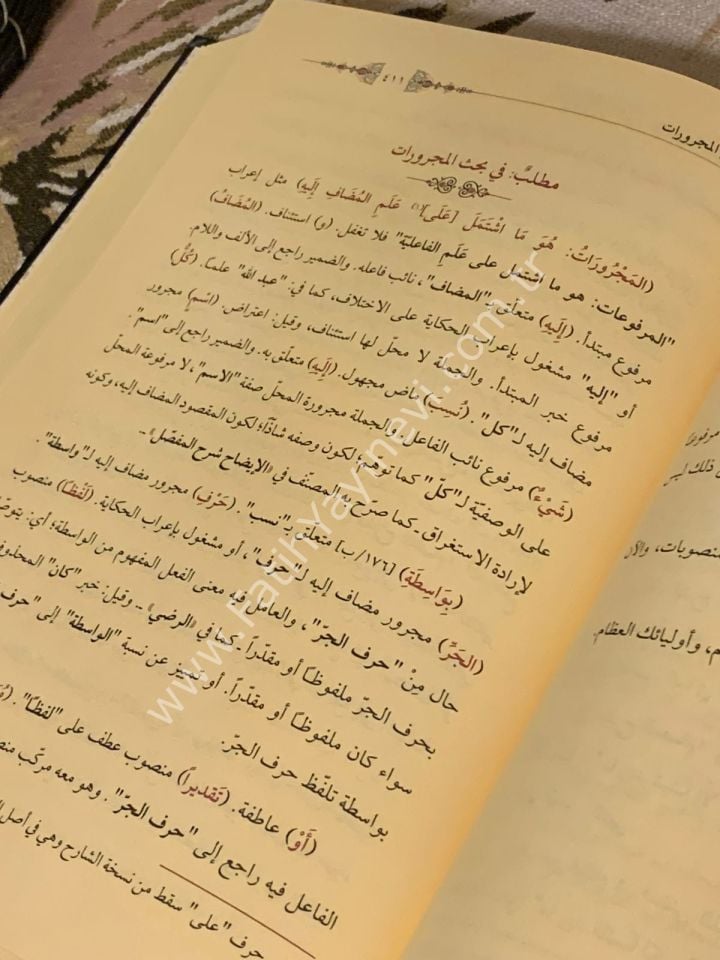 ٤١١
المجرورات
مطلبٌ: في بحث المجرورات
(المَجْرُورَاتُ: هُوَ مَا اشْتَمَلَ [عَلَى](١) عَلَمِ المُضَافِ إِلَيهِ) مثل إعراب
"المرفوعات: هو ما اشتمل على عَلَمِ الفاعليّة" فلا تغفل. (و) استئناف. (المُضَافُ)
مرفوع مبتدأ. (إِلَيهِ) متعلّق بـ"المضاف"، نائب فاعله. والضمير راجع إلى الألف واللام.
أو "إليه" مشغول بإعراب الحكاية على الاختلاف، كما في: "عبد الله" علمًا. (كُلُّ)
مرفوع خبر المبتدأ. والجملة لا محلّ لها استئناف، وقيل: اعتراض. (اسْمٍ) مجرور
مضاف إليه لـ"كل". (نُسِبَ) ماض مجهول. (إِلَيهِ) متعلّق به. والضمير راجع إلى "اسم".
(شَيْءٌ) مرفوع نائب الفاعل. والجملة مجرورة المحلّ صفة "الاسم"، لا مرفوعة المحلّ
على الوصفيّة لـ"كلّ" كما توهم؛ لكون وصفه شاذًّا؛ لكون المقصود المضاف إليه، وكونه
لإرادة الاستغراق ـ كما صرّح به المصنّف في «الإيضاح شرح المفصّل» ـ.
(بِوَاسِطَةِ) [١٧٦/ب] متعلّق بـ"نسب". (حَرْفِ) مجرور مضاف إليه لـ"واسطة".
(الجَرِّ) مجرور مضاف إليه لـ"حرف"، أو مشغول بإعراب الحكاية. (لَفْظًا) منصوب
حال مِنْ "حرف الجرّ"، والعامل فيه معنى الفعل المفهوم من الواسطة؛ أي: يتوصّل
بحرف الجرّ ملفوظًا أو مقدّراً ـ كما في «الرضي» ـ وقيل: خبر "كان" المحذوف
سواء كان ملفوظًا أو مقدّراً. أو تمييز عن نسبة "الواسطة" إلى "حرف
بواسطة تلفّظ حرف الجرّ.
(أَوْ) عاطفة. (تَقديراً) منصوب عطف على "لفظًا".
الفاعل فيه راجع إلى "حرف الجرّ". وهو معه مركّب
حرف "على" سقط من نسخة الشارح وهي في أصل
مرفوعًا
ذلك ليس
منصوبات، والآن
م، وأوليائك العظام.
www.FatihYayinevi.com.tr